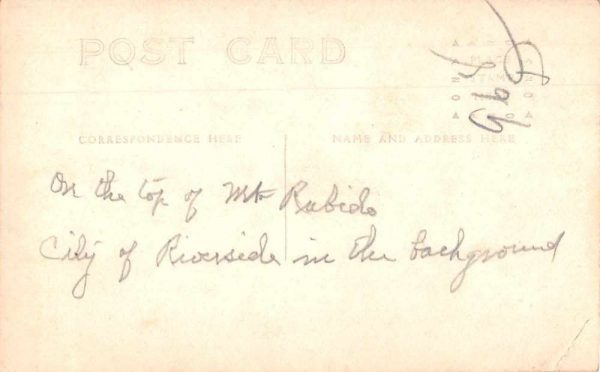 POST CARD
CORRESPONDENCE HERE
NAME AND ADDRESS HERE
On the top of Mt Rubido
City of Riverside in the background